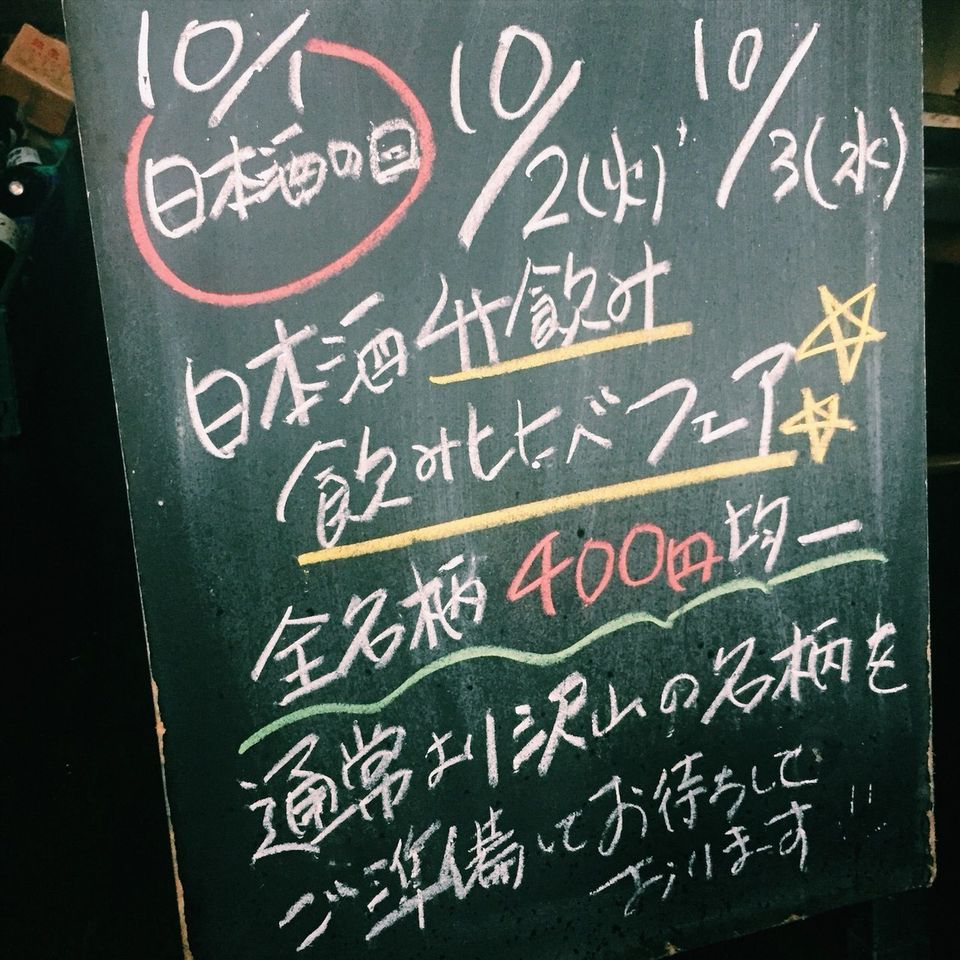 10/1 10/2(火)、10/3(水)
日本酒の日
日本酒 升飲み
飲みくらべフェア
全名柄 400円均一
通常より沢山の名柄を
ご準備してお待ちして
おりまーす!!